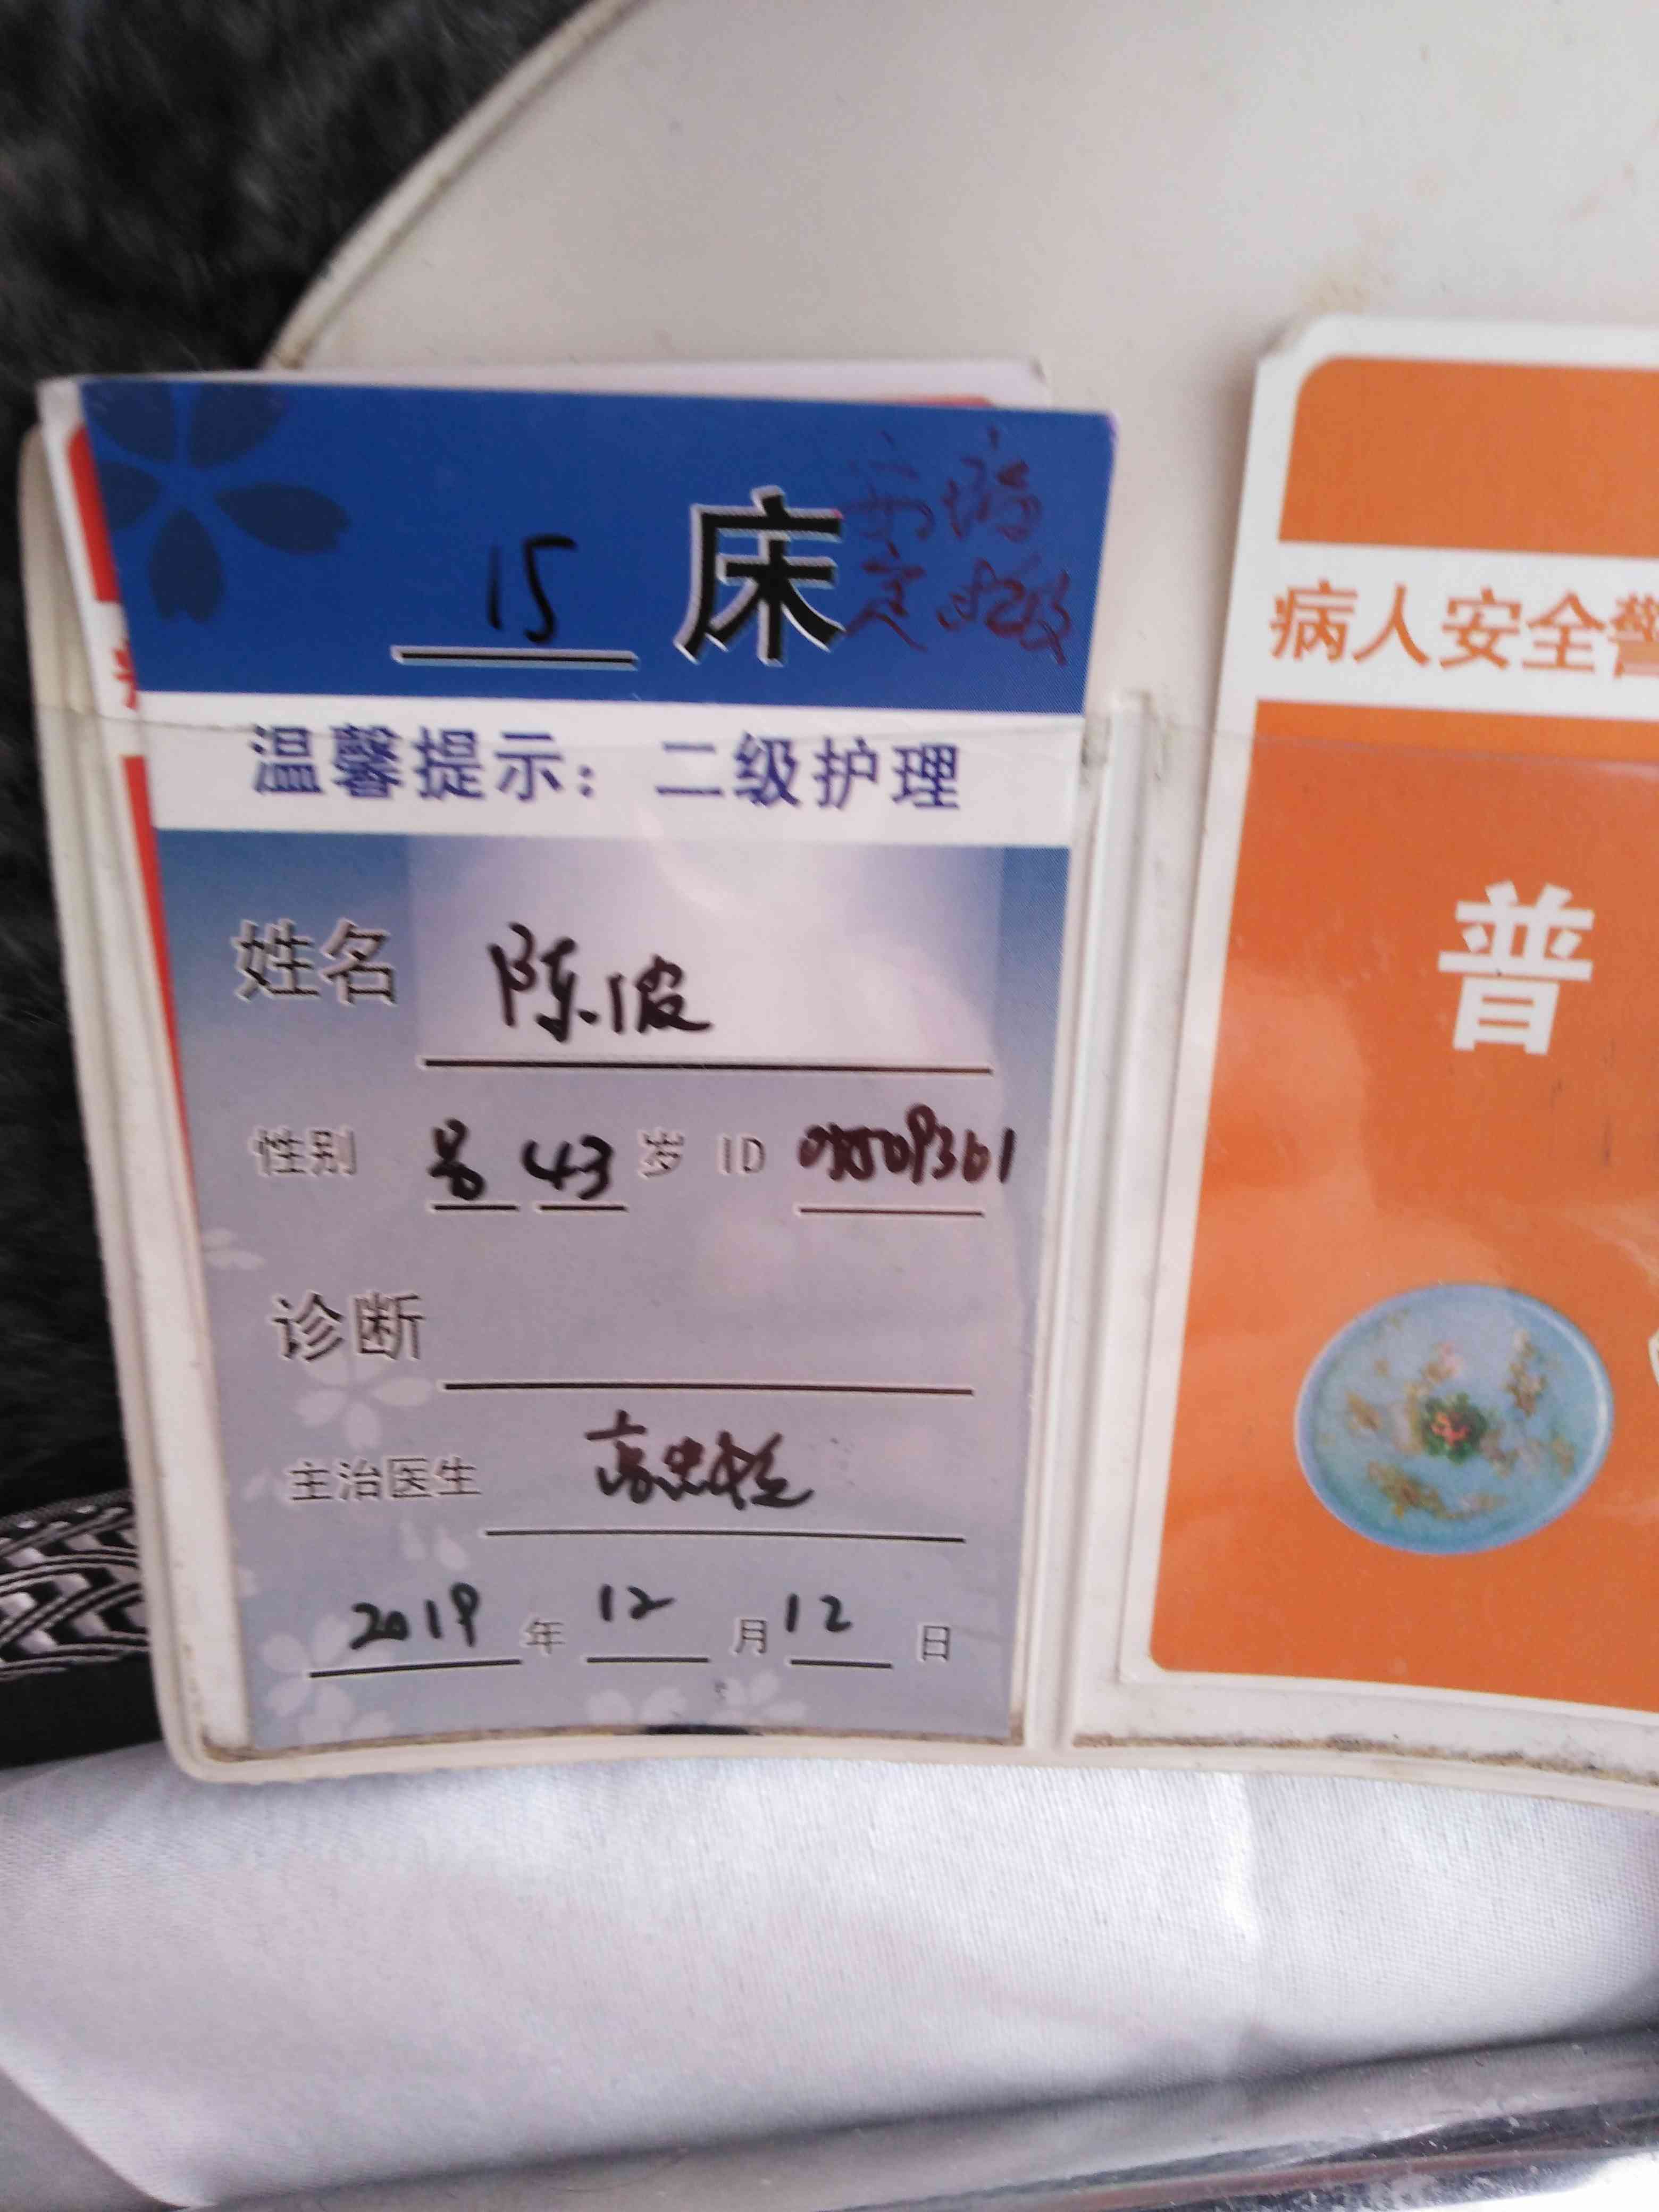 15 床
温馨提示：二级护理
姓名 陈波
性别 男 43 岁 ID
诊断
主治医生
2019 年 12 月 12 日
病人安全警
普